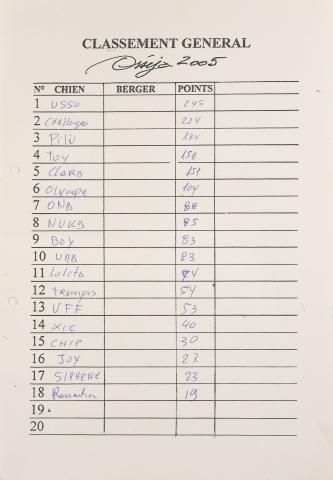 CLASSEMENT GENERAL
2005
N° CHIEN BERGER POINTS
1 USSO 245
2 Challenger
3
4 TOY 158
5 CLARA 151
6 Olympe 104
7 ONA 88
8 NUKA 85
9 BOY 83
10 UNA 83
11 Lolita
12 54
13 UFF 53
14 XIC 40
15 CHIP 30
16 JOY
17 23
18 19
19
20